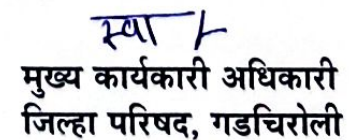 स्वा/-
मुख्य कार्यकारी अधिकारी
जिल्हा परिषद, गडचिरोली